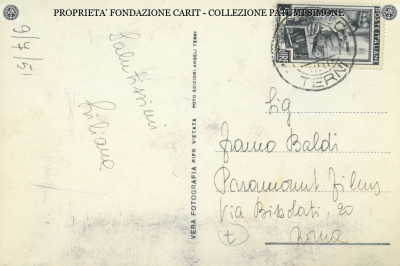 PROPRIETA' FONDAZIONE CARIT - COLLEZIONE PATUMI SIMONE
9/7/51
Salutissimi
Liliana
VERA FOTOGRAFIA RIPR. VIETATA FOTO EDIZIONI ANGELI TERNI
POSTE ITALIANE
TERNI
Sig
Franco Baldi
Paramount Films
Via Bissolati, 20
Roma